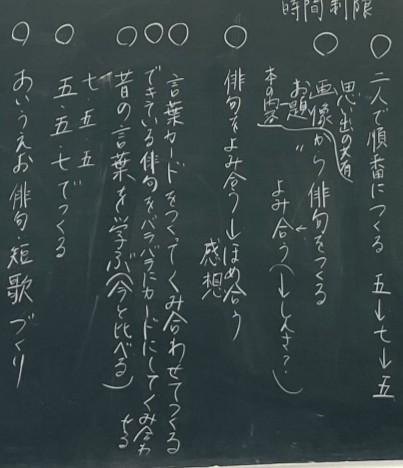 時間制限
○ 二人で順番につくる 五→七→五
思い出の共有
○ 画像から俳句をつくる
お題 〃
本の内容
よみ合う(→しんさ?)
○ 俳句をよみ合う→ほめ合う
感想
○ 言葉カードをつくってくみ合わせてつくる
○ できている俳句をバラバラにカードにしてくみ合わせる
○ 昔の言葉を学ぶ(今と比べる)
七・五・五
○ 五・五・七でつくる
○ あいうえお俳句・短歌づくり